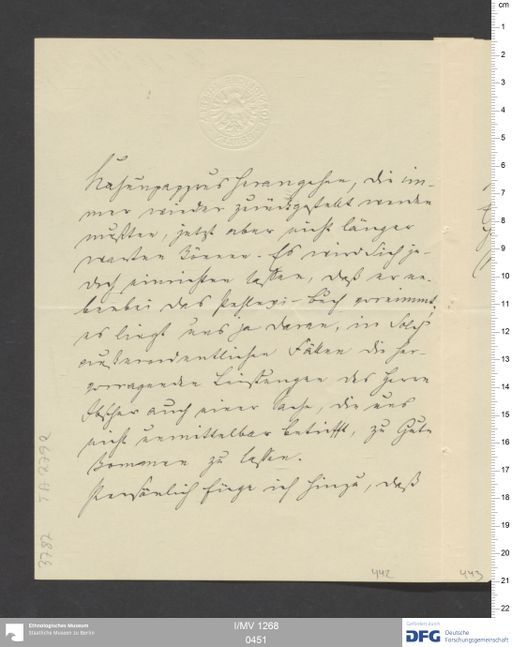 papyrus herangehen, die im-
mer wieder zurückgestellt werden
mußten, jetzt aber nicht länger
warten können. Es wird sich je-
doch einrichten lassen, daß er ne-
benbei das Buch vornimmt;
es liegt uns ja daran, in solch
außerordentlichen Fällen die her-
vorragenden Leistungen des Herrn
Ibscher auch einer Sache, die uns
nicht unmittelbar betrifft, zu Gute
kommen zu lassen.
Persönlich füge ich hinzu, daß
3782 TA 2792
442
443
Ethnologisches Museum
Staatliche Museen zu Berlin
I/MV 1268
0451
Gefördert durch
DFG Deutsche
Forschungsgemeinschaft
cm
1
2
3
4
5
6
7
8
9
10
11
12
13
14
15
16
17
18
19
20
21
22